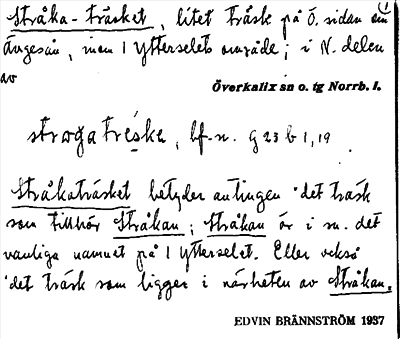 Stråka-träsket, litet träsk på ö. sidan om
Ängesån, inom 1 Ytterselets område; i N. delen
av
Överkalix sn o. tg Norrb. l.
strågaträske, bf.n. G 23 b 1,19
Stråkaträsket betyder antingen 'det träsk
som tillhör Stråkan; Stråkan är i sn. det
vanliga namnet på 1 Ytterselet. Eller också
'det träsk som ligger i närheten av Stråkan.
EDVIN BRÄNNSTRÖM 1937